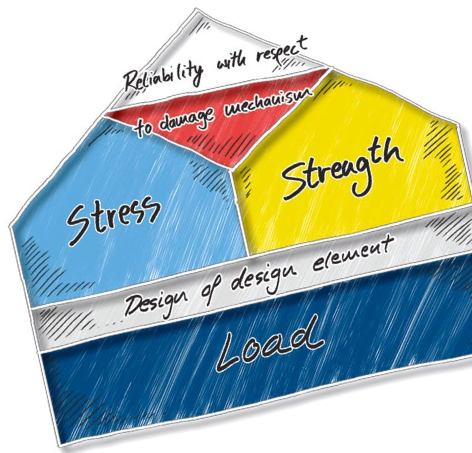 Reliability with respect
to damage mechanism
Stress
Strength
Design of design element
Load